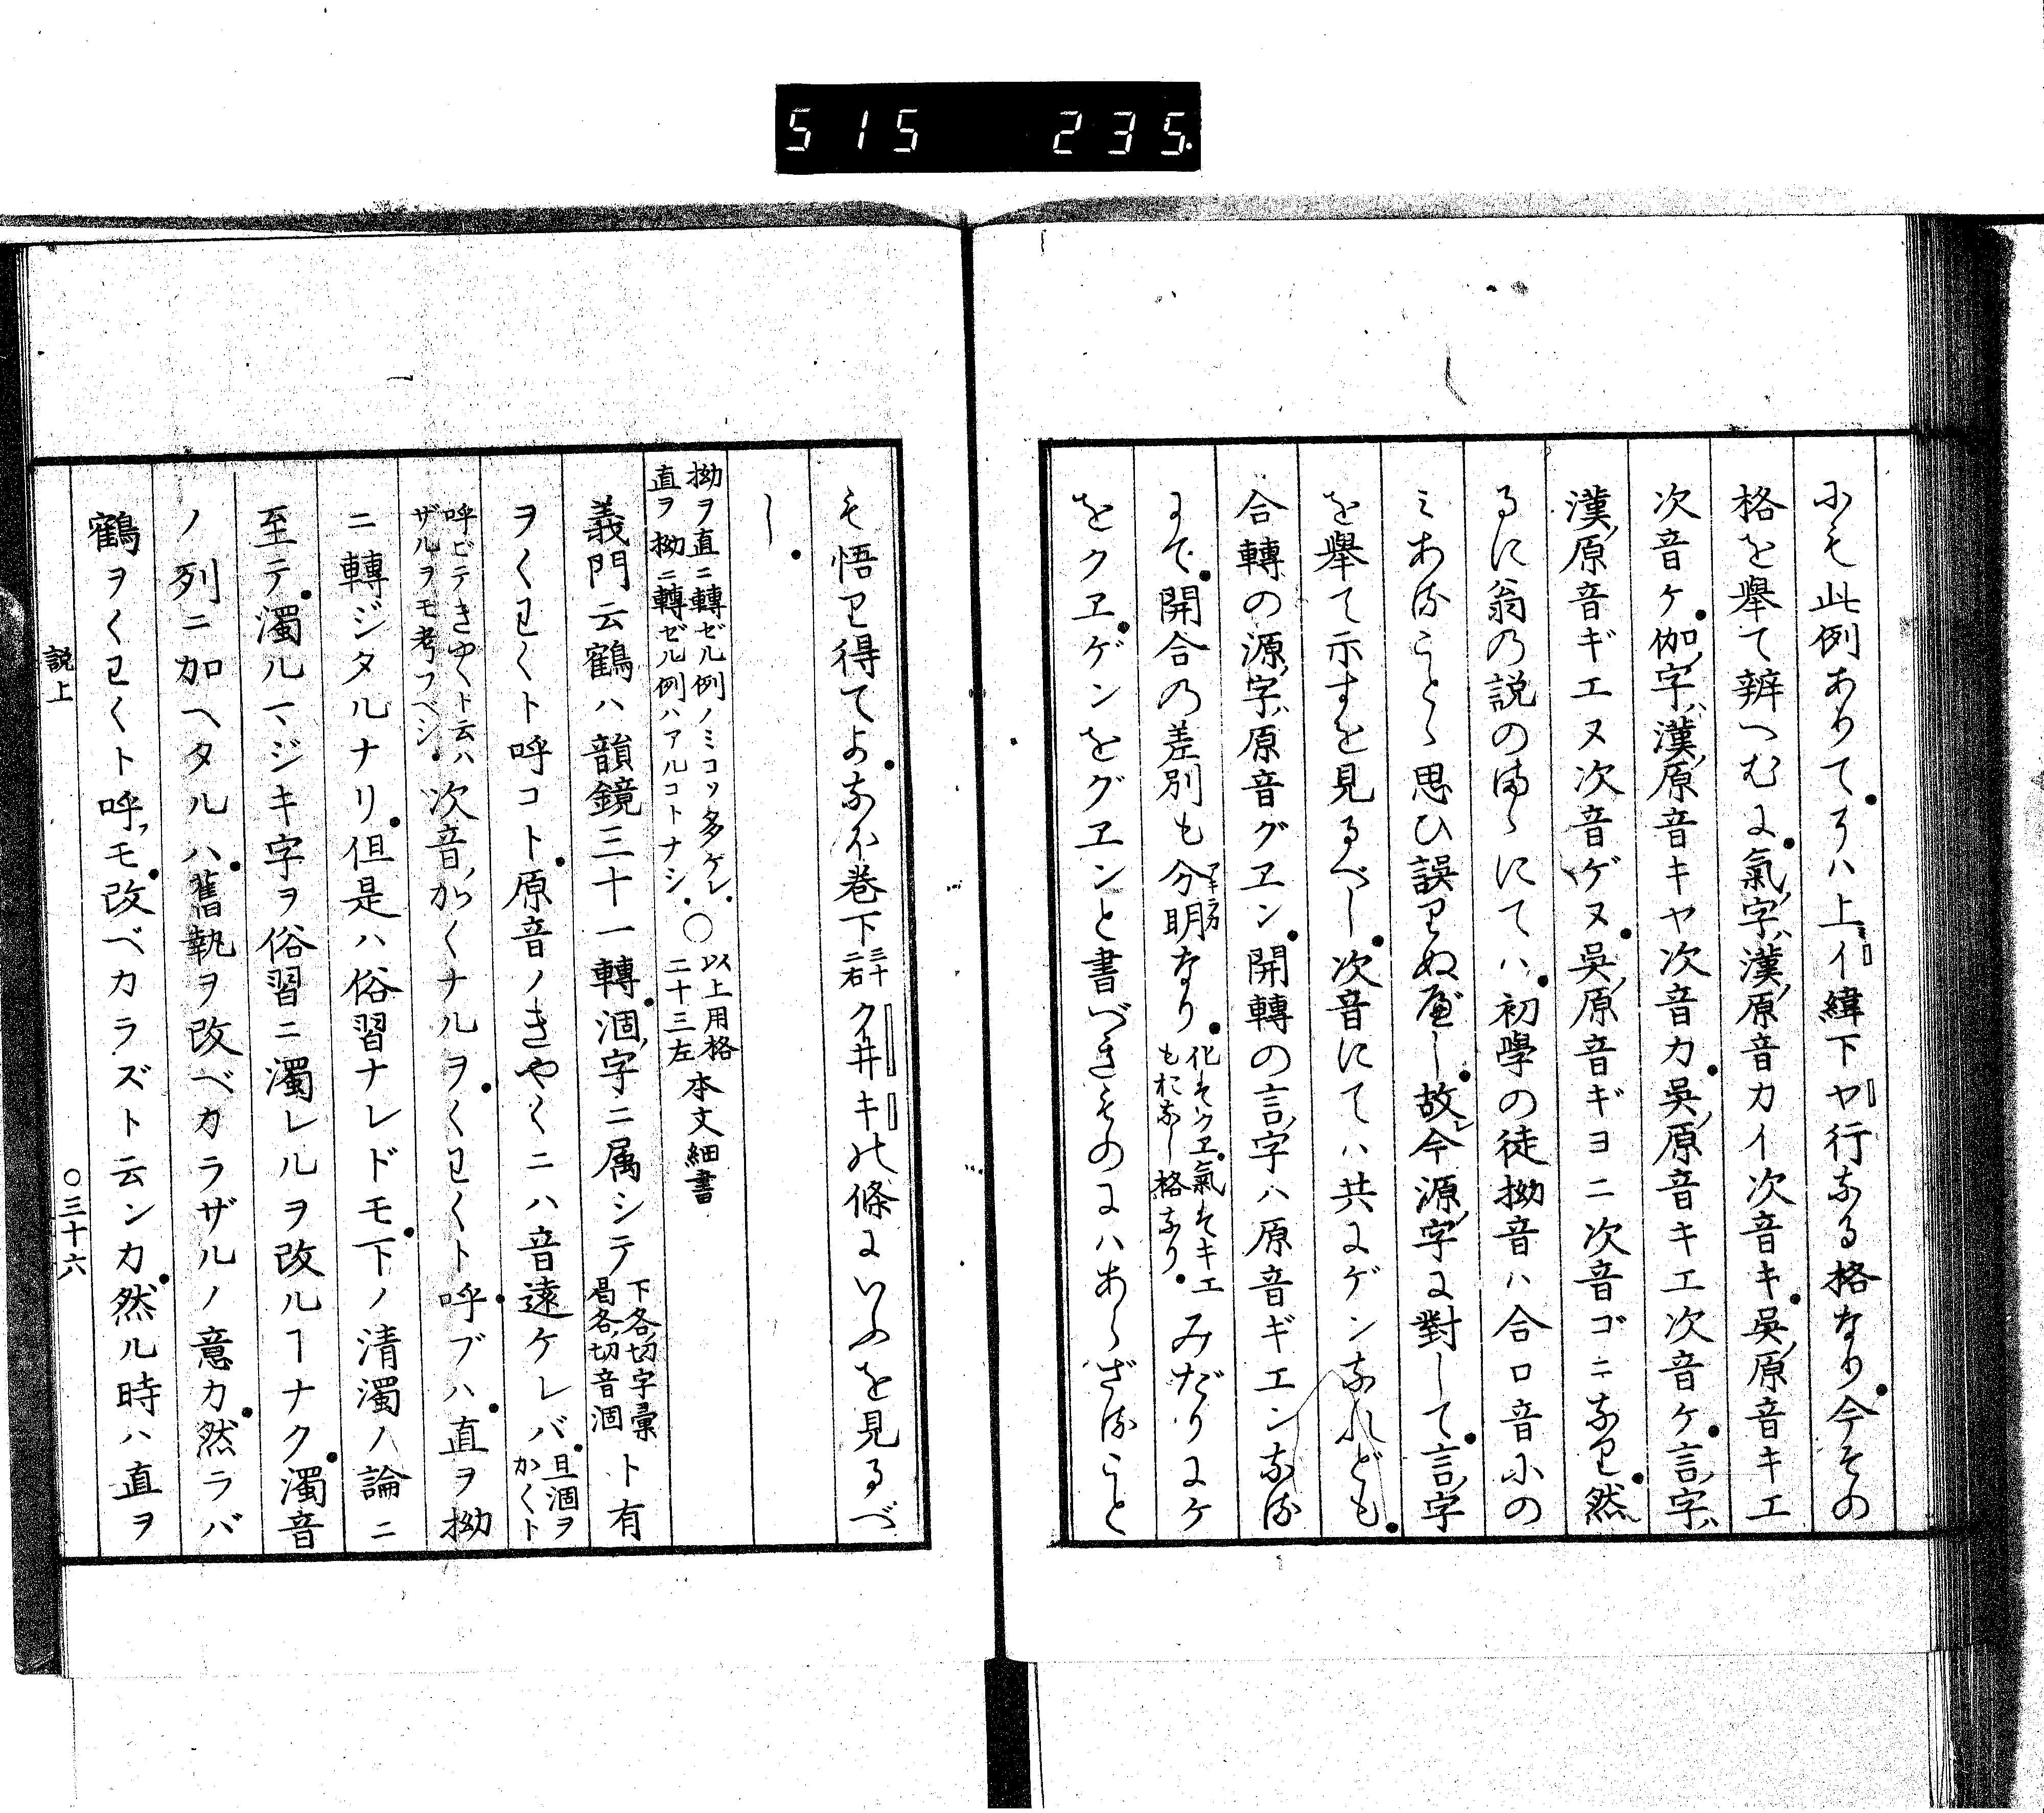 515 235.
にも此例ありて。そハ上イ緯下ヤ行なる格なり。今その
格を擧て辨へむに。氣ノ字ハ漢ノ原音カイ次音キ。吳ノ原音キエ
次音ケ。伽ノ字ハ漢ノ原音キヤ次音カ。吳ノ原音キエ次音ケ。言ノ字ハ
漢ノ原音ギエヌ次音ゲヌ。吳ノ原音ギヨニ次音ゴニなり。然
るに翁の説のまゝにてハ。初學の徒拗音ハ合口音にの
ミあることゝ思ひ誤りぬべし。故レ今源ノ字に對して。言ノ字
を擧て示すを見るべし。次音にてハ共にゲンなれども。
合轉の源ノ字ハ原音グヱン。開轉の言ノ字ハ原音ギエンなる
にて。開合の差別も分明なり。化をクヱ。氣をキエ
もおなじ格なり。みだりにケ
をクヱ。ゲンをグヱンと書べきものにハあらざること
も悟り得てよ。なほ巻下三十
二右クヰキの條にいふを見るべ
し。
拗ヲ直ニ轉ゼル例ノミコソ多ケレ。
直ヲ拗ニ轉ゼル例ハアルコトナシ。〇以上用格
二十三左本文細書
義門云鶴ハ韻鏡三十一轉。涸ノ字ニ属シテ下各ノ切字彙
曷各ノ切音涸ト有
ヲくわくト呼コト。原音ノきやくニハ音遠ケレバ。且涸ヲ
かくト
呼ビテきやくト云ハ
ザルヲモ考フベシ。次音ノかくナルヲ。くわくト呼ブハ。直ヲ拗
ニ轉ジタルナリ。但是ハ俗習ナレドモ。下ノ清濁ノ論ニ
至テ。濁ルマジキ字ヲ俗習ニ濁レルヲ改ルヿナク。濁音
ノ列ニ加ヘタルハ。舊執ヲ改ベカラザルノ意カ。然ラバ
鶴ヲくわくト呼フモ。改ベカラズト云ンカ。然ル時ハ直ヲ
説上
〇三十六